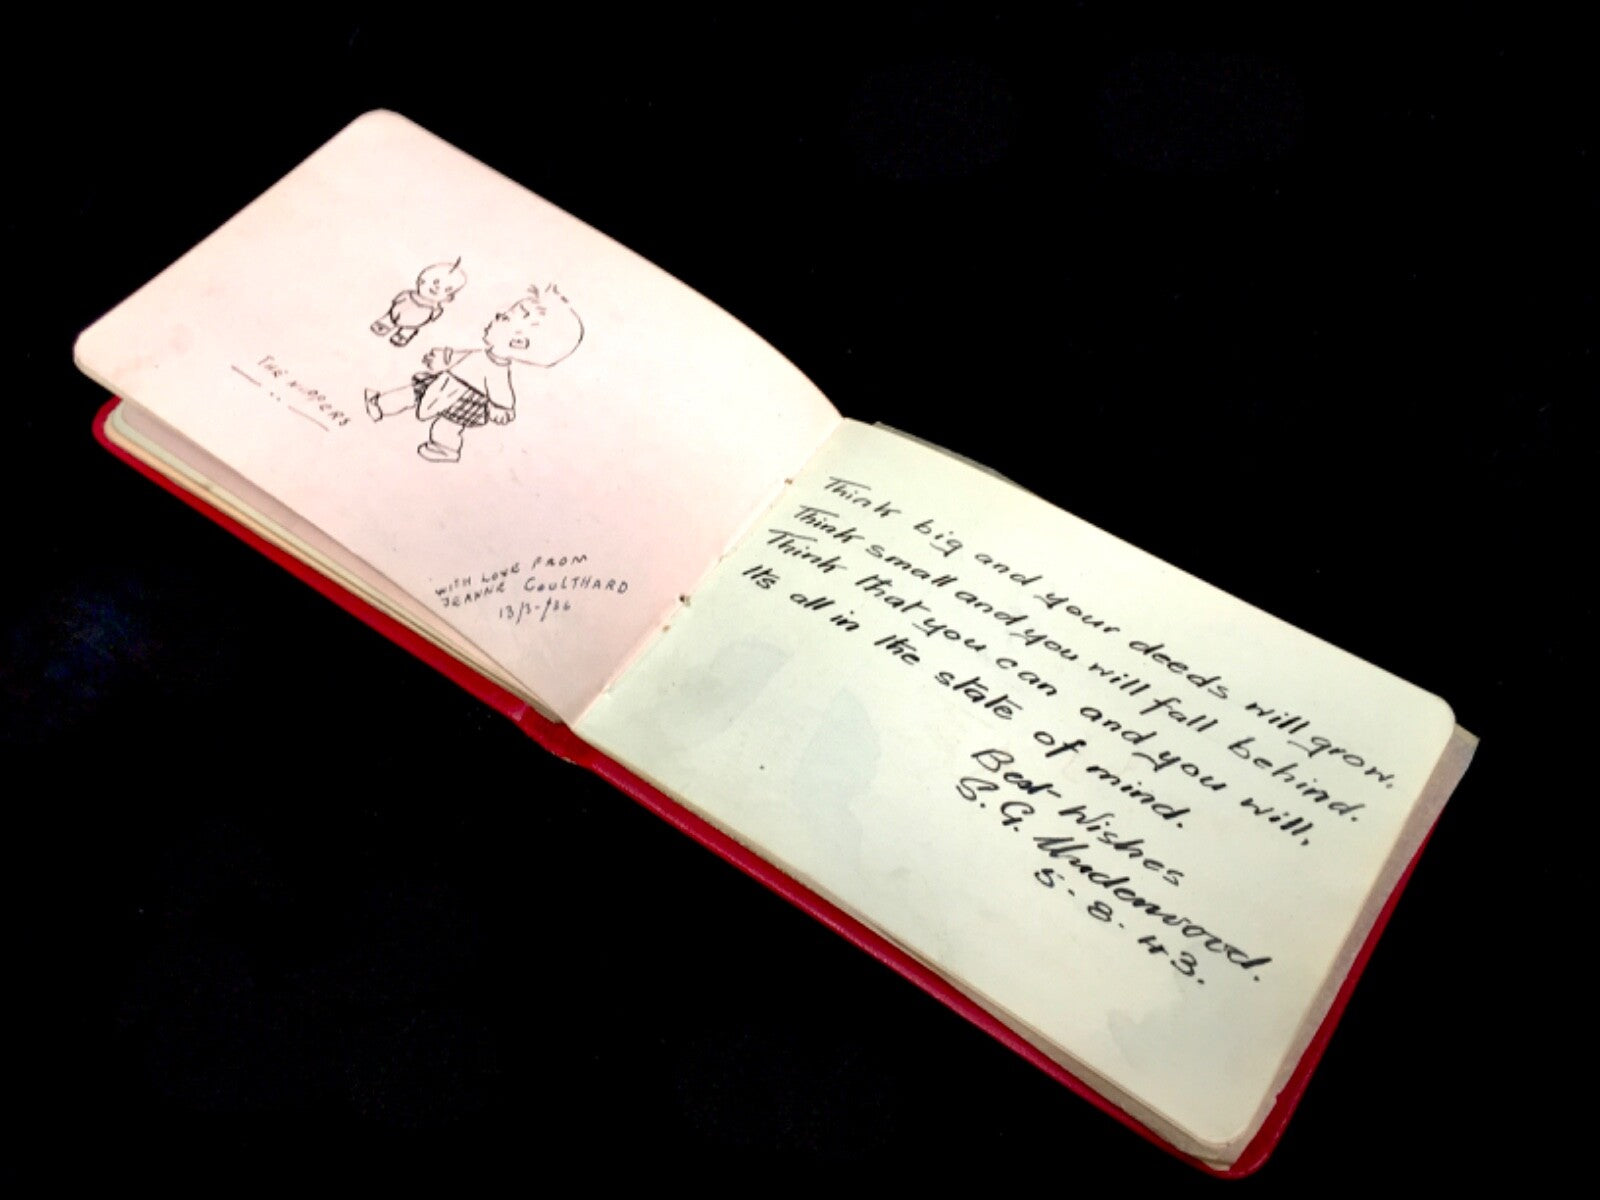 THE NIPPERS
WITH LOVE FROM
JEANNE COULTHARD
13/3-/36
Think big and your deeds will grow.
Think small and you will fall behind.
Think that you can and you will,
Its all in the state of mind.
Best Wishes
S. G. Underwood.
5. 8. 43.